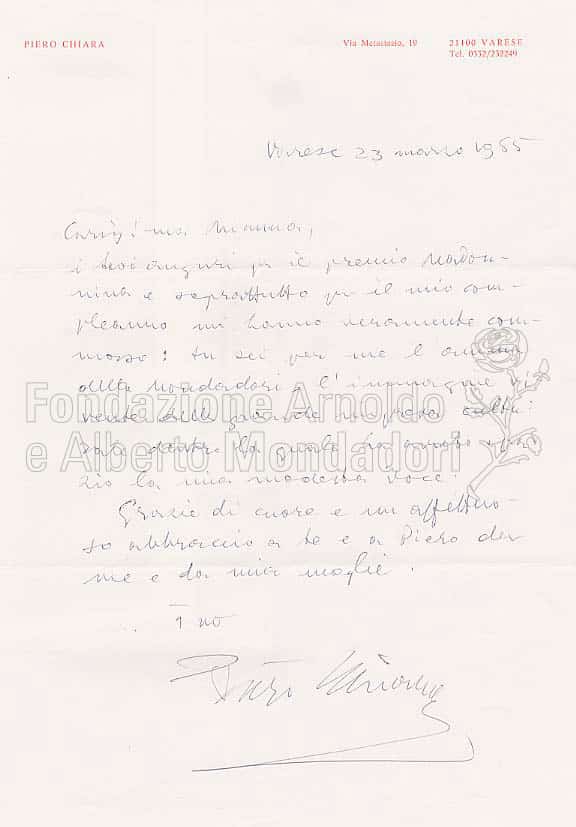 PIERO CHIARA
Via Metastasio, 19
21100 VARESE
Tel. 0332/232249
Varese 23 marzo 1985
Carissima Mimma,
i tuoi auguri per il premio Madon-
nina e soprattutto per il mio com-
pleanno mi hanno veramente com-
mosso: tu sei per me l'anima
della Mondadori e l'immagine vi-
vente della grande impresa cultu-
rale dentro la quale ha avuto spa-
zio la mia modesta voce.
Grazie di cuore e un affettuo-
so abbraccio a te e a Piero da
me e da mia moglie.
Tuo
Piero Chiara
Fondazione Arnoldo
e Alberto Mondadori